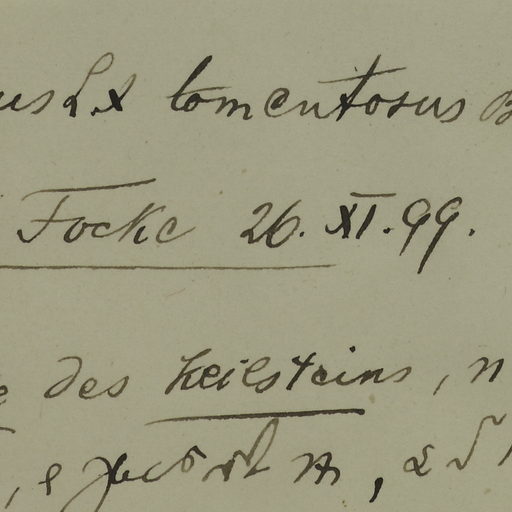 us L. x tomentosus B
Focke 26. XI. 99.
e des Keilsteins, n